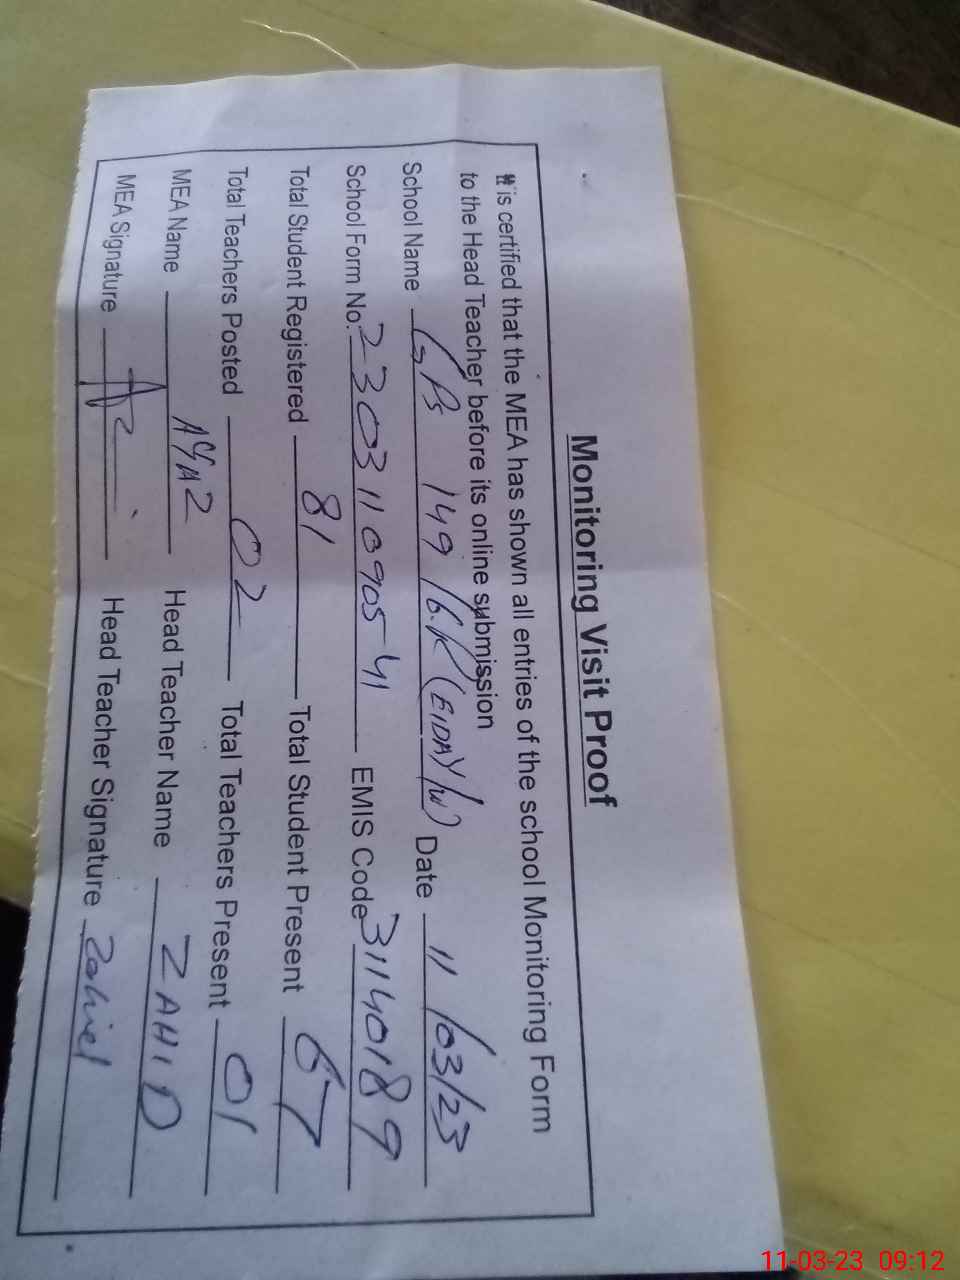 Monitoring Visit Proof
It is certified that the MEA has shown all entries of the school Monitoring Form
to the Head Teacher before its online submission
School Name GPS 149 /6.R (EIDAY/W) Date 11/03/23
School Form No. 2303110905-41 EMIS Code 31140189
Total Student Registered 81 Total Student Present 67
Total Teachers Posted 02 Total Teachers Present 01
MEA Name Head Teacher Name ZAHID
MEA Signature Head Teacher Signature Zahid
11-03-23 09:12